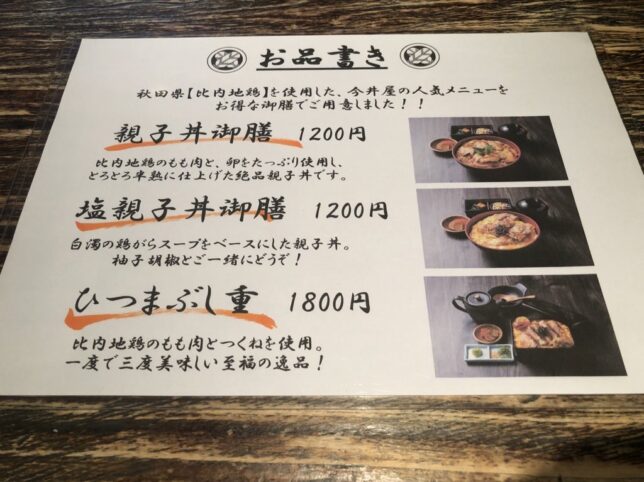 お品書き
秋田県【比内地鶏】を使用した、今井屋の人気メニューを
お得な御膳でご用意しました！！
親子丼御膳 1200円
比内地鶏のもも肉と、卵をたっぷり使用し、
とろとろ半熟に仕上げた絶品親子丼です。
塩親子丼御膳 1200円
白濁の鶏がらスープをベースにした親子丼。
柚子胡椒とご一緒にどうぞ！
ひつまぶし重 1800円
比内地鶏のもも肉とつくねを使用。
一度で三度美味しい至福の逸品！